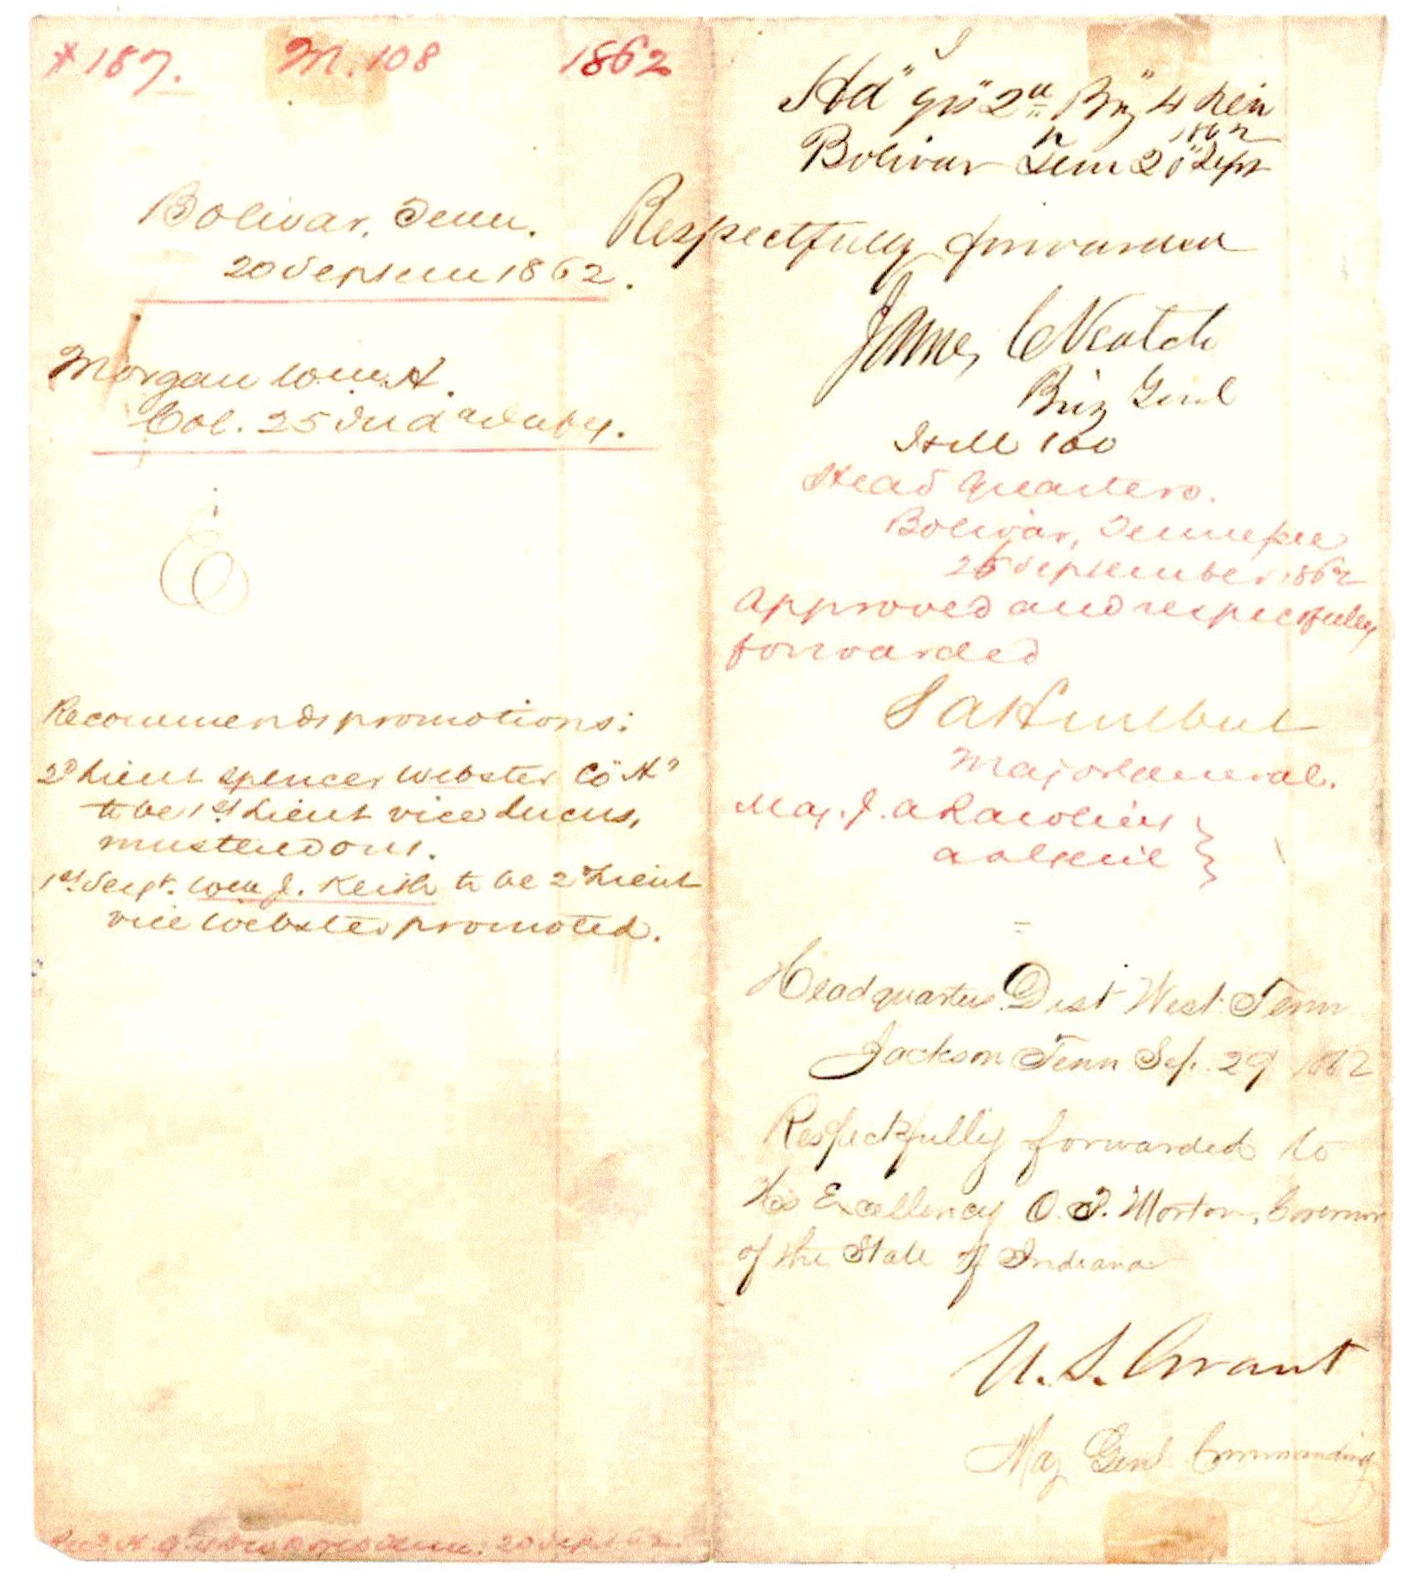 * 187. M. 108 1862
Bolivar, Tenn.
20 Septem 1862.
Morgan Wm. A.
Col. 25 Ind a Infty.
E
Recommends promotions:
2d Lieut Spencer Webster Co "A"
to be 1st Lieut vice Lucus,
mustered out.
1st Sergt. Wm J. Keith to be 2d Lieut
vice Webster promoted.
Hd" Qrs" 2d Brig" 4 Div
Bolivar Tenn 20" Sept
1862
Respectfully forwarded
James C Veatch
Brig Genl
Head Quarters.
Bolivar, Tennessee
25 September 1862
Approved and respectfully
forwarded
S A Hurlbut
Major General.
Maj. J. A Rawlins
Headquarters Dist West Tenn
Jackson Tenn Sep. 29 1862
Respectfully forwarded to
His Excellency O. P. Morton, Governor
of the State of Indiana
U. S. Grant
Maj Genl Commanding